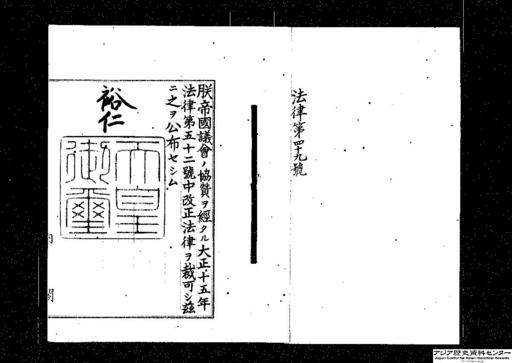 法律第四十九號
朕帝國議會ノ協贊ヲ經タル大正十五年
法律第五十二號中改正法律ヲ裁可シ茲
ニ之ヲ公布セシム
裕仁
天皇
御璽
内閣
アジア歴史資料センター
Japan Center for Asian Historical Records